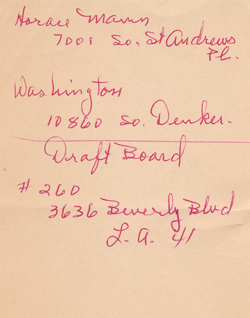 Horace Mann
7001 So. St Andrews
Pl.
Washington
10860 So. Denker.
Draft Board
# 260
3636 Beverly Blvd
L.A. 41